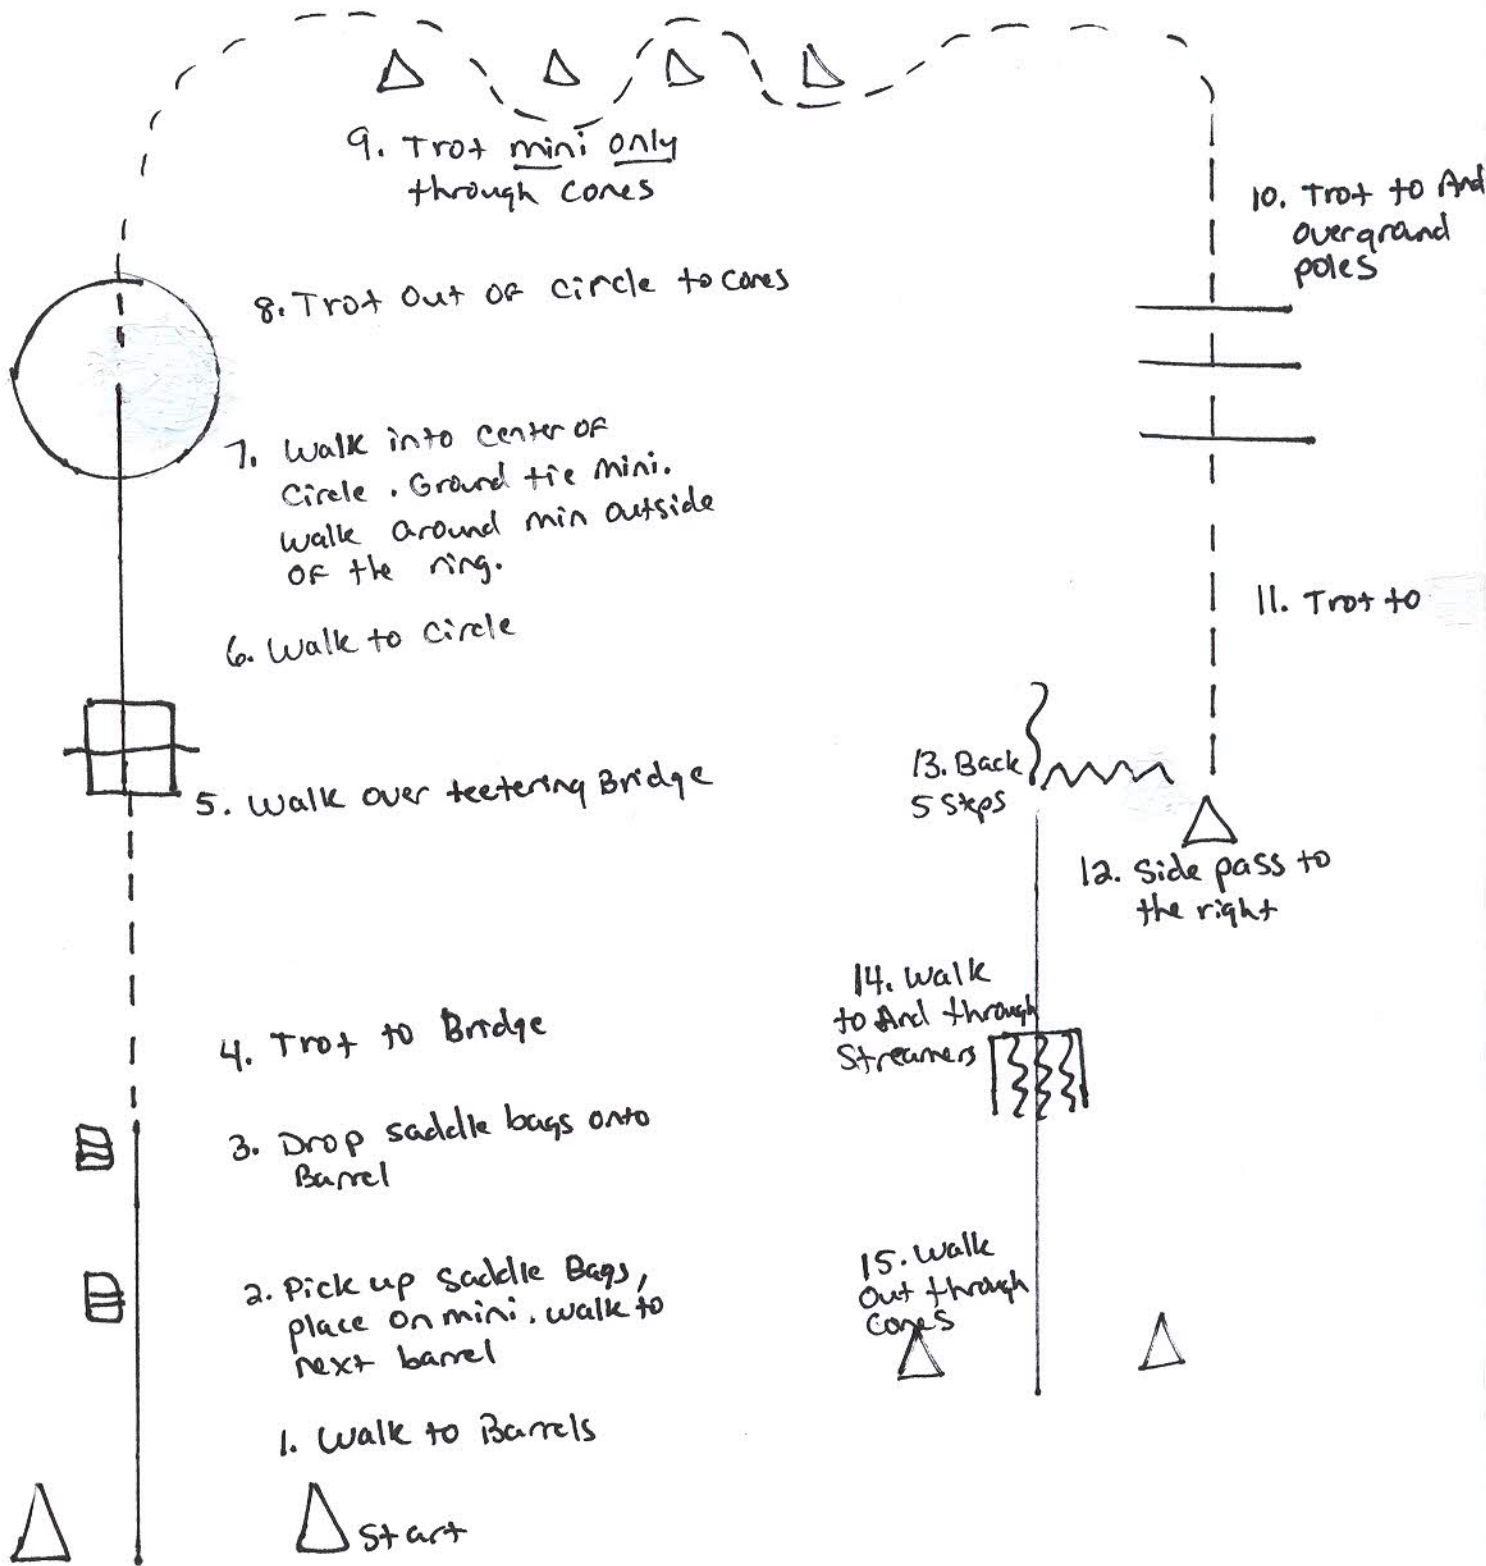 9. Trot mini only
through cones
10. Trot to And
over ground
poles
8. Trot Out OF Circle to Cones
7. Walk into center OF
Circle. Ground tie mini.
Walk around min outside
OF the ring.
11. Trot to
6. Walk to Circle
13. Back
5 Steps
5. Walk over teetering Bridge
12. Side pass to
the right
14. Walk
to And through
Streamers
4. Trot to Bridge
3. Drop saddle bags onto
Barrel
15. Walk
Out through
Cones
2. Pick up Saddle Bags,
place on mini. Walk to
next barrel
1. Walk to Barrels
Start